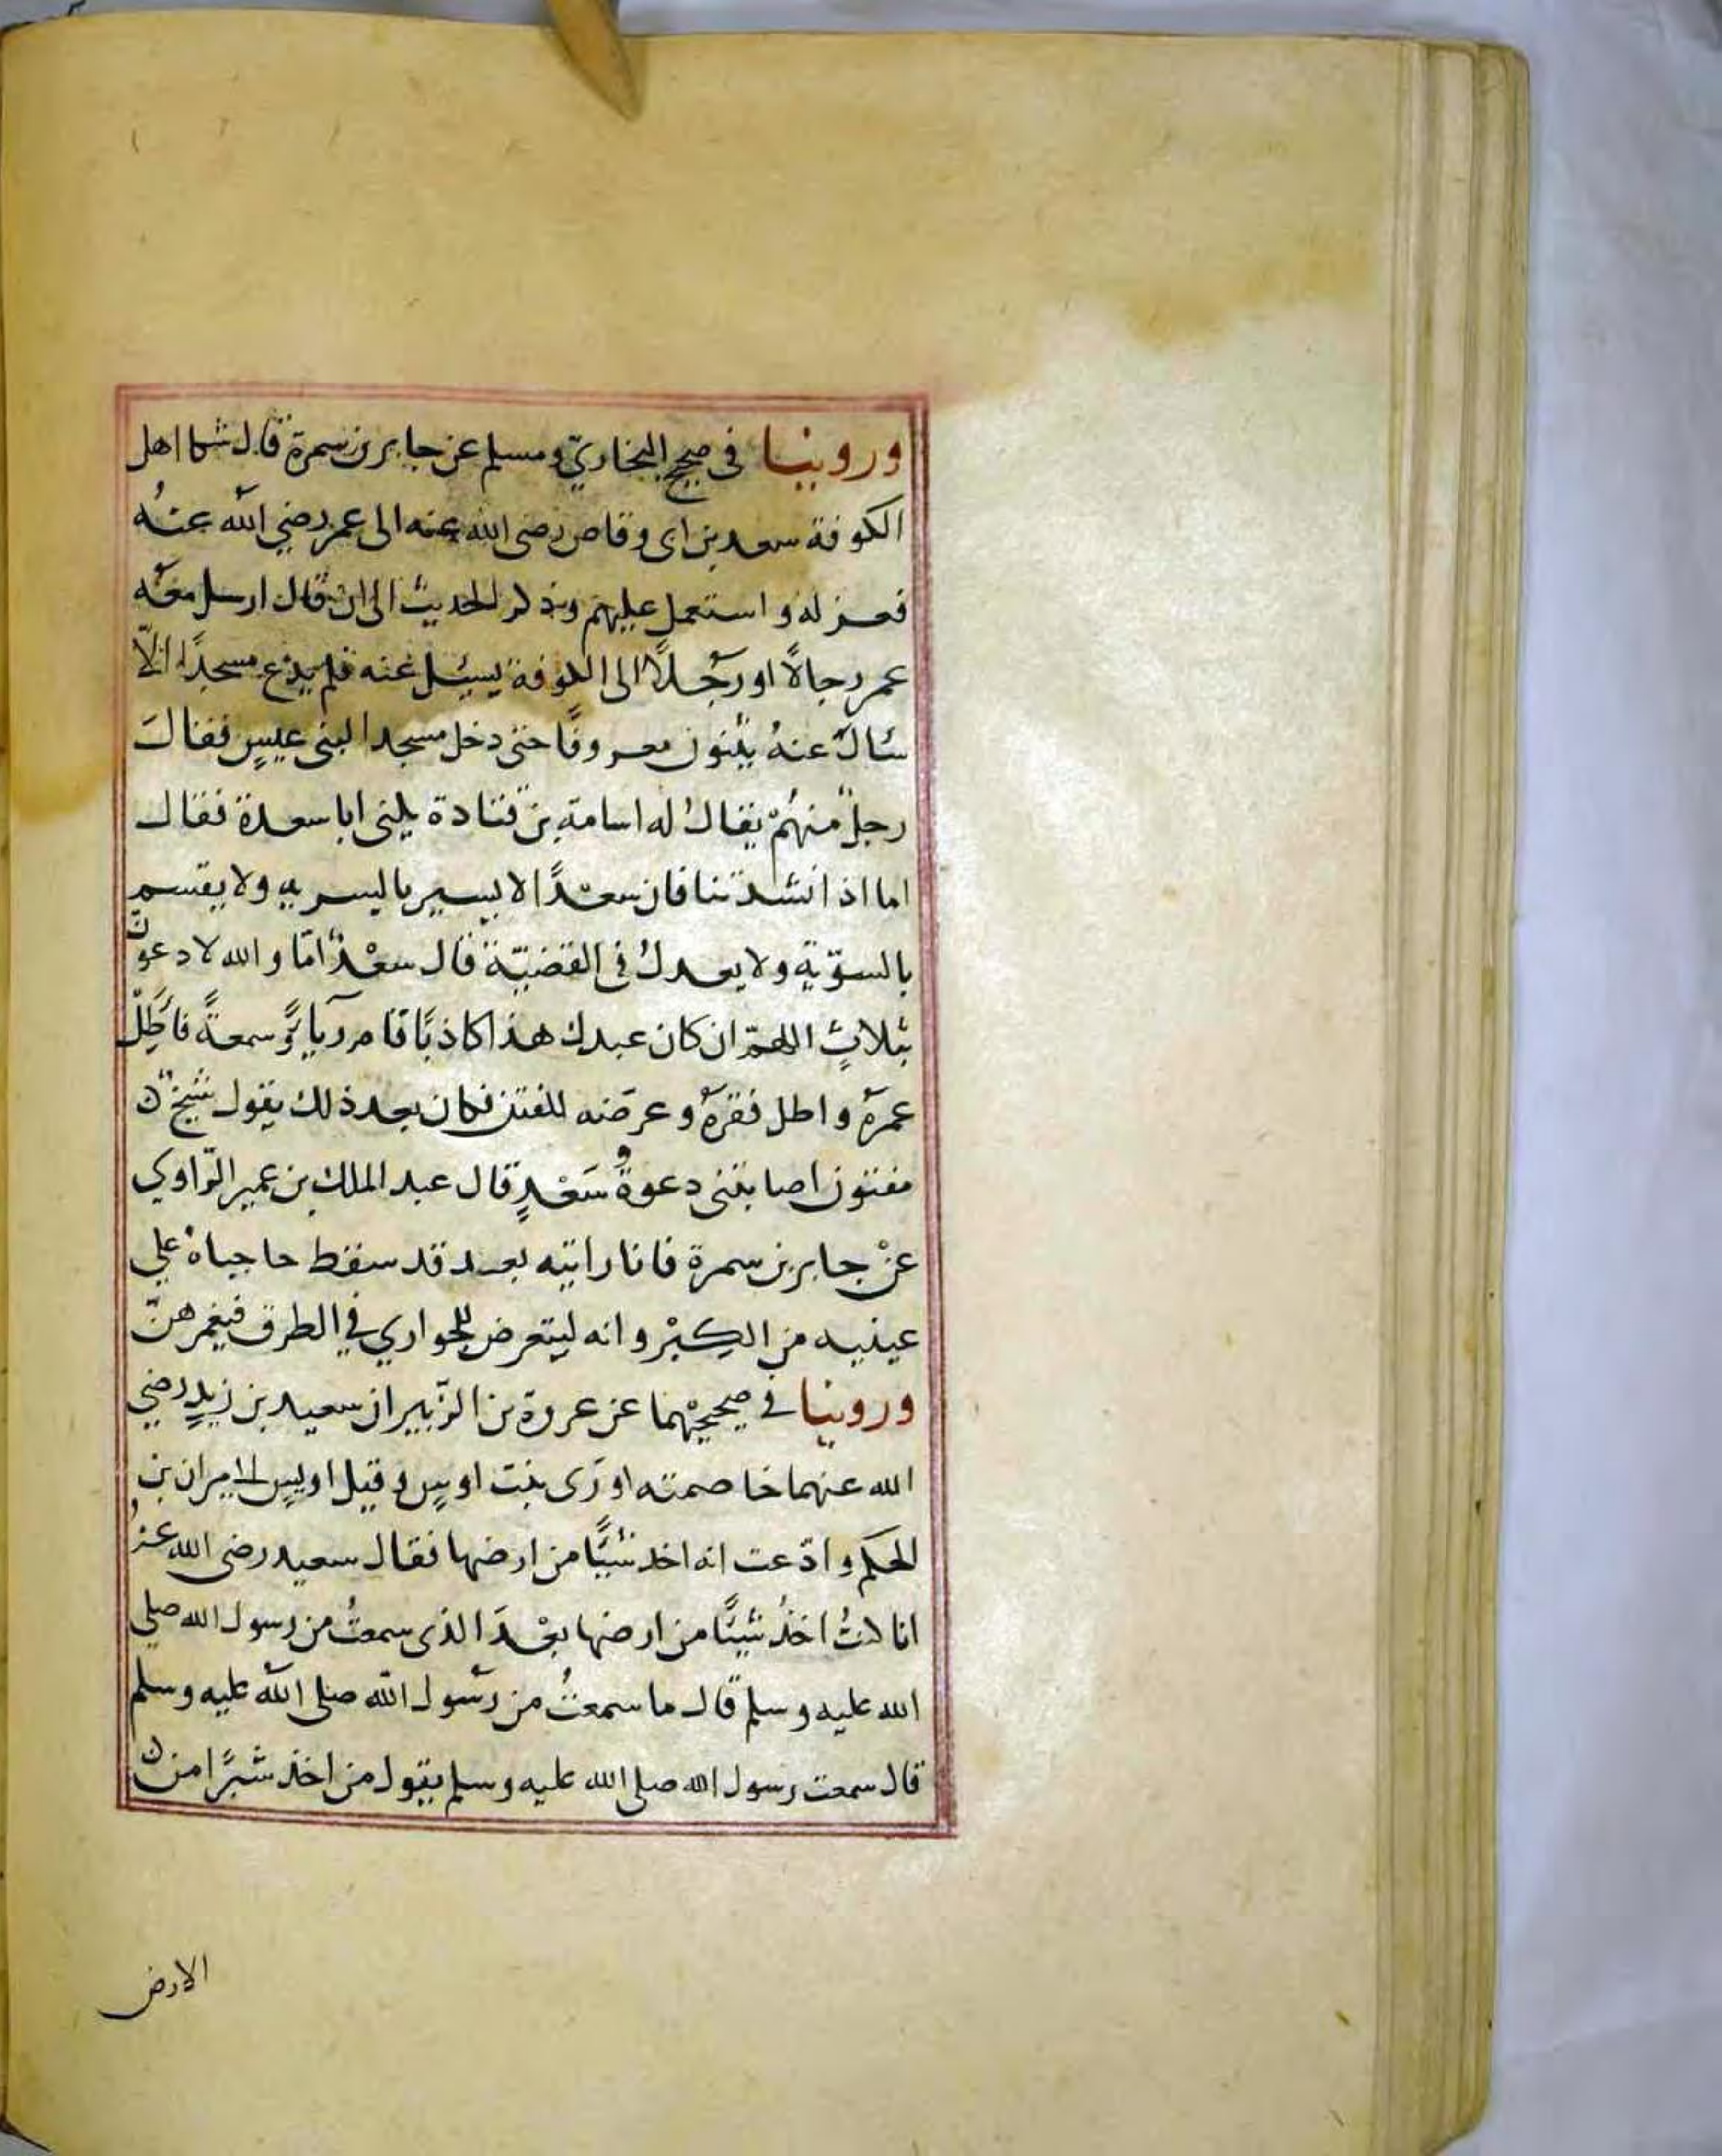 وروينا في صحيح البخاري ومسلم عن جابر بن سمرة قال شكا اهل
الكوفة سعد بن ابى وقاص رضى الله عنه الى عمر رضي الله عنه
فعزله واستعمل عليهم وذكر الحديث الى ان قال ارسل معه
عمر رجالًا او رجلًا الى الكوفة يسئل عنه فلم يدع مسجدًا الّا
سَال عنهُ يثنون معروفًا حتى دخل مسجدا لبنى عبسٍ فقال
رجلٌ منهُمْ يقالُ له اسامة بن قتادة يكنى ابا سعدة فقال
اما اذا نشدتنا فان سعْدًا لا يسير بالسريه ولا يقسم
بالسوّية ولا يعدلُ فى القضيّة قال سعْدٌ امّا والله لادعونّ
بثلاثٍ اللهمّ ان كان عبدك هذا كاذبًا قام رياءً وسمعةً فأَطِلْ
عمرهُ واطل فقرهُ وعرضه للفتن فكان بعد ذلك يقول شيخٌ
مفتون اصابتنى دعوةُ سَعْدٍ قال عبد الملك بن عمير الرّاوي
عنْ جابر بن سمرة فانا رايته بعد قد سقط حاجباه علي
عينيه من الكِبْر وانه ليتعرض للجواري في الطرق فيغمزهنّ
وروينا في صحيحيْهما عن عروة بن الزّبير ان سعيد بن زيدٍ رضي
الله عنهما خاصمته اورَى بنت اوسٍ وقيل اويسٍ الى مران بن
الحكم وادّعت انه اخذ شيئًا من ارضها فقال سعيد رضى الله عنهُ
انا كنتُ اخذُ شيئًا من ارضها بعْدَ الذى سمعتُ من رسول الله صلي
الله عليه وسلم قال ما سمعتُ من رسول الله صلى الله عليه وسلم
قال سمعت رسول الله صلى الله عليه وسلم يقول من اخذ شبرًا من
الارض